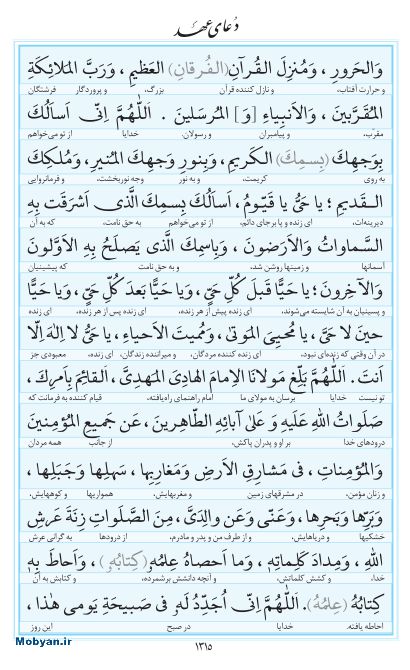 دُعای عهد
وَالحَرورِ ، وَمُنزِلَ القُرآنِ(الفُرقانِ) العَظیمِ ، وَرَبَّ المَلائِکَةِ
و حرارت آفتاب، و نازل کننده قرآن بزرگ، و پروردگار فرشتگان
المُقَرَّبینَ ، وَالاَنبِیاءِ [وَ] المُرسَلینَ . اَللّٰهُمَّ اِنّی اَسأَلُکَ
مقرّب، و پیامبران و رسولان. خدایا از تو می‌خواهم
بِوَجهِکَ (بِسمِکَ) الکَریمِ ، وَبِنورِ وَجهِکَ المُنیرِ، وَمُلکِکَ
به روی کریمت، و به نور وجه نوربخشت، و فرمانروایی
القَدیمِ ؛ یا حَیُّ یا قَیّومُ ، اَسأَلُکَ بِسمِکَ الَّذی اَشرَقَت بِهِ
دیرینه‌ات، ای زنده و پا برجای دائم، از تو می‌خواهم به حق نامت، که به آن
السَّماواتُ وَالاَرَضونَ ، وَبِاسمِکَ الَّذی یَصلَحُ بِهِ الاَوَّلونَ
آسمانها و زمینها روشن شد. و به حق نامت که پیشینیان
وَالآخِرونَ ؛ یا حَیًّا قَبلَ کُلِّ حَیٍّ ، وَیا حَیًّا بَعدَ کُلِّ حَیٍّ ، وَیا حَیًّا
و پسینیان به آن شایسته می‌شوند، ای زنده پیش از هر زنده، ای زنده پس از هر زنده، ای زنده
حینَ لا حَیَّ ، یا مُحیِیَ المَوتیٰ ، وَمُمیتَ الاَحیاءِ ، یا حَیُّ لا اِلٰهَ اِلّا
در آن وقتی که زنده‌ای نبود، ای زنده کننده مردگان، و میراننده زندگان، ای زنده، معبودی جز
اَنتَ . اَللّٰهُمَّ بَلِّغ مَولانَا الاِمامَ الهادِیَ المَهدِیَّ ، القائِمَ بِاَمرِکَ ،
تو نیست خدایا برسان به مولای ما امام راهنمای راه‌یافته، قیام کننده به فرمانت که
صَلَواتُ اللهِ عَلَیهِ وَ عَلیٰ آبائِهِ الطّاهِرینَ ، عَن جَمیعِ المُؤمِنینَ
درودهای خدا بر او و پدران پاکش، از جانب همه مردان
وَالمُؤمِناتِ ، فی مَشارِقِ الاَرضِ وَمَغارِبِها ، سَهلِها وَجَبَلِها ،
و زنان مؤمن، در مشرقهای زمین و مغربهایش، همواریها و کوههایش،
وَبَرِّها وَبَحرِها ، وَعَنّی وَعَن والِدَیَّ ، مِنَ الصَّلَواتِ زِنَةَ عَرشِ
خشکیها و دریاهایش، و از طرف من و پدر و مادرم، از درودها به گرانی عرش
اللهِ ، وَمِدادَ کَلِماتِهِ ، وَما اَحصاهُ عِلمُهُ (کِتابُهُ) ، وَاَحاطَ بِهِ
خدا، و کشش کلماتش، و آنچه دانشش برشمرده، و کتابش به آن
کِتابُهُ (عِلمُهُ). اَللّٰهُمَّ اِنّی اُجَدِّدُ لَهُ فی صَبیحَةِ یَومی هٰذا ،
احاطه یافته. خدایا در صبح این روز
۱۳۱۵
Mobyan.ir